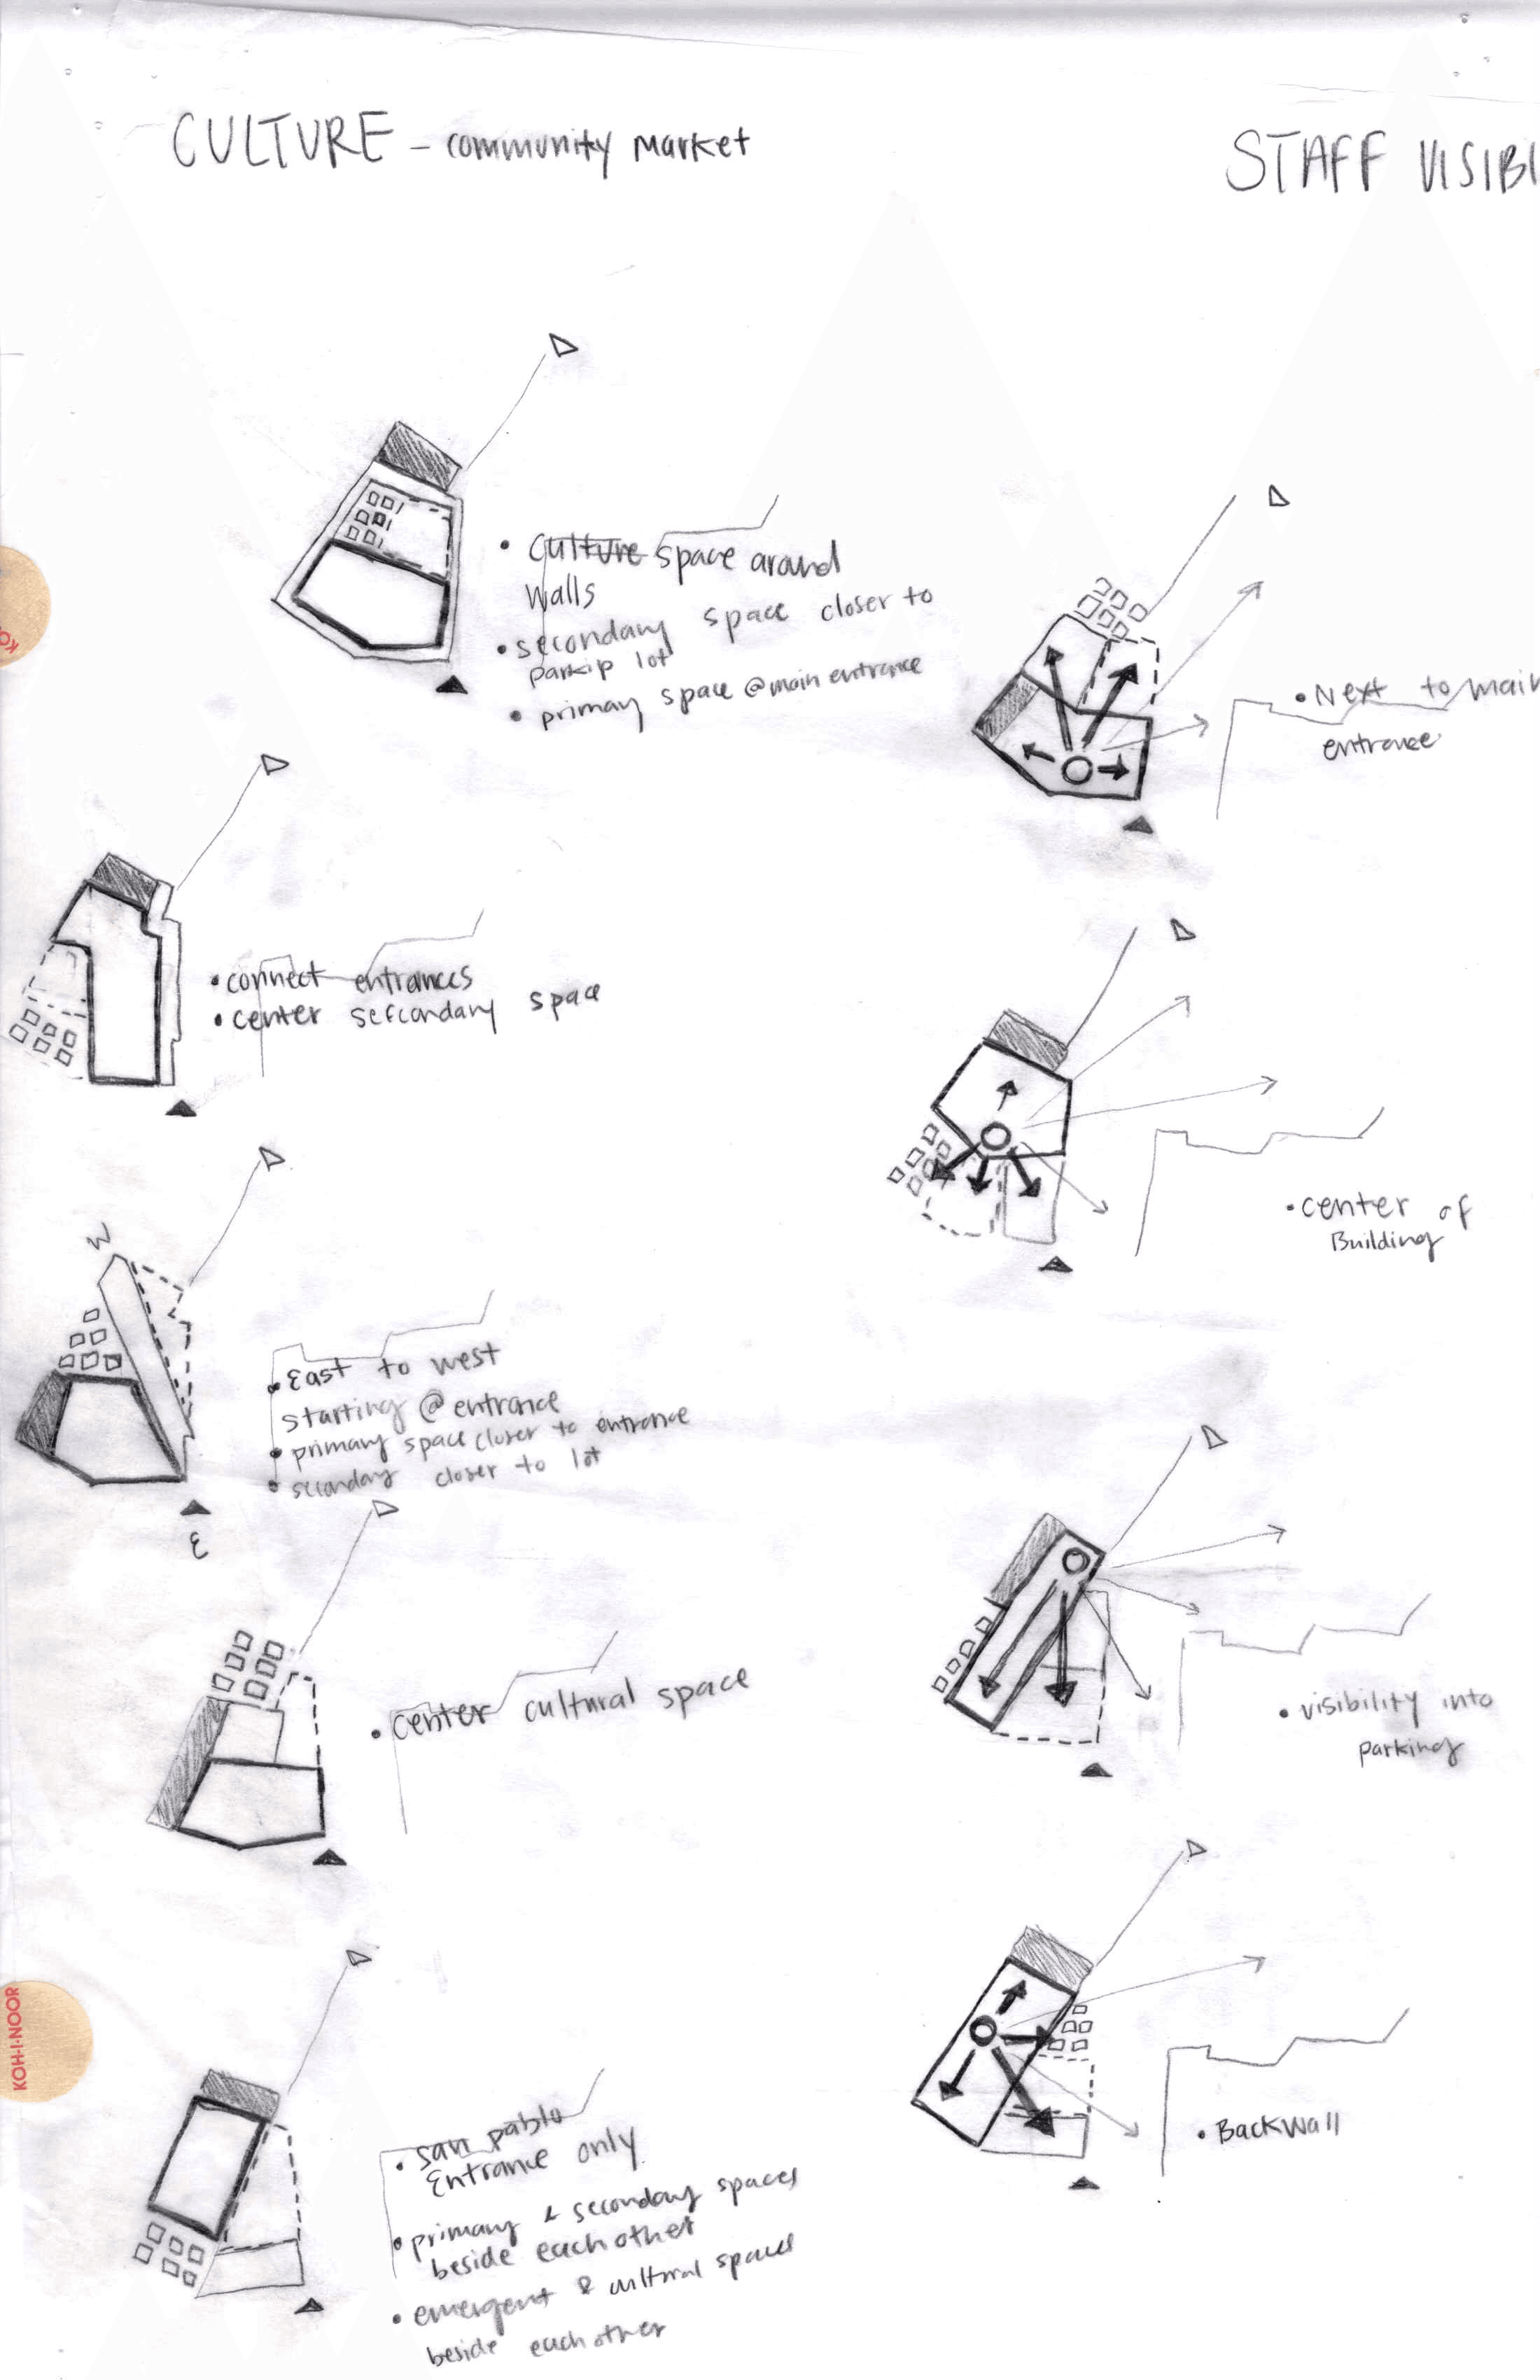 CULTURE - community market
culture space around
walls
secondary space closer to
parkip lot
primary space @ main entrance
connect entrances
center sefcondary space
W
East to west
starting @ entrance
primary space closer to entrance
secondary closer to lot
E
center cultural space
san pablo
Entrance only
primary & secondary spaces
beside each other
emergent & cultural spaces
beside each other
KOH-I-NOOR
STAFF VISIBI
Next to main
entrance
center of
Building
visibility into
parking
Backwall